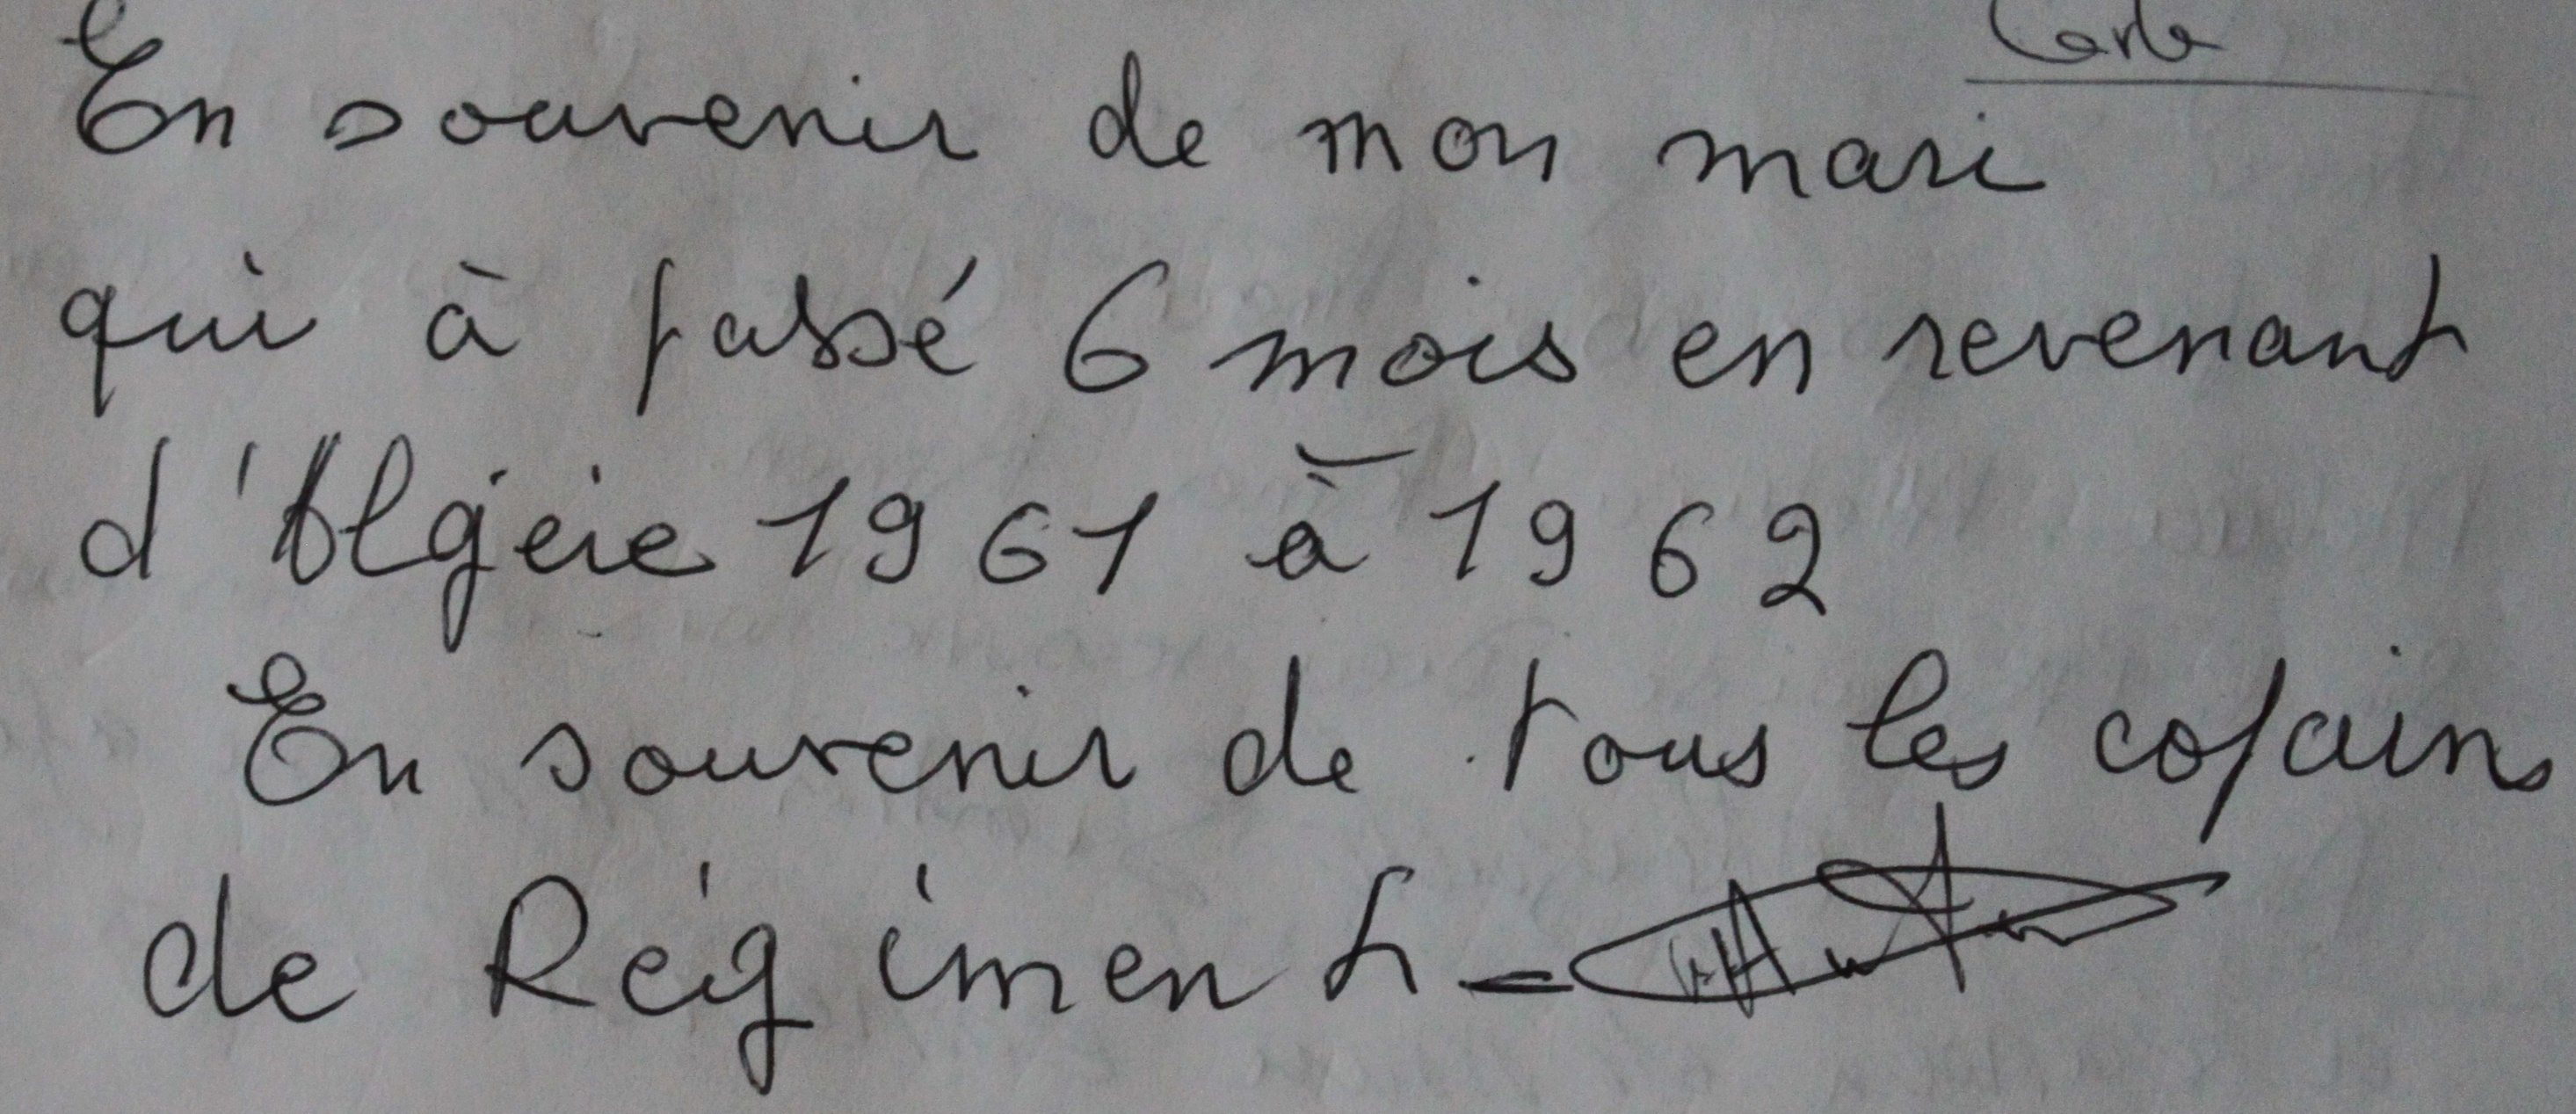 En souvenir de mon mari
qui à passé 6 mois en revenant
d'Algérie 1961 à 1962
En souvenir de tous les copains
de Régiment -